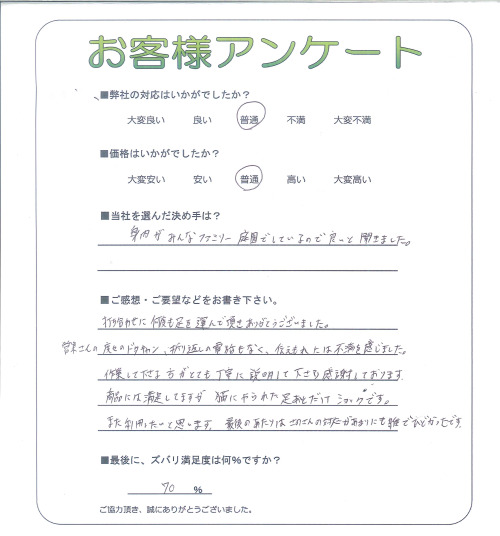 お客様アンケート
■弊社の対応はいかがでしたか？
大変良い 良い 普通 不満 大変不満
■価格はいかがでしたか？
大変安い 安い 普通 高い 大変高い
■当社を選んだ決め手は？
身内がみんなファミリー庭園でしているので良いと聞きました。
■ご感想・ご要望などをお書き下さい。
打ち合わせに何度も足を運んで頂きありがとうございました。
さんの 折り返しの電話もなく、 不満を感じました。
作業して下さる方がとても丁寧に説明して下さり感謝しております。
商品には満足してますが 猫にやられた足あとだけショックです。
また利用したいと思います。最後のあたりは さんの対応があまりにも雑でひどかったです。
■最後に、ズバリ満足度は何％ですか？
70 ％
ご協力頂き、誠にありがとうございました。